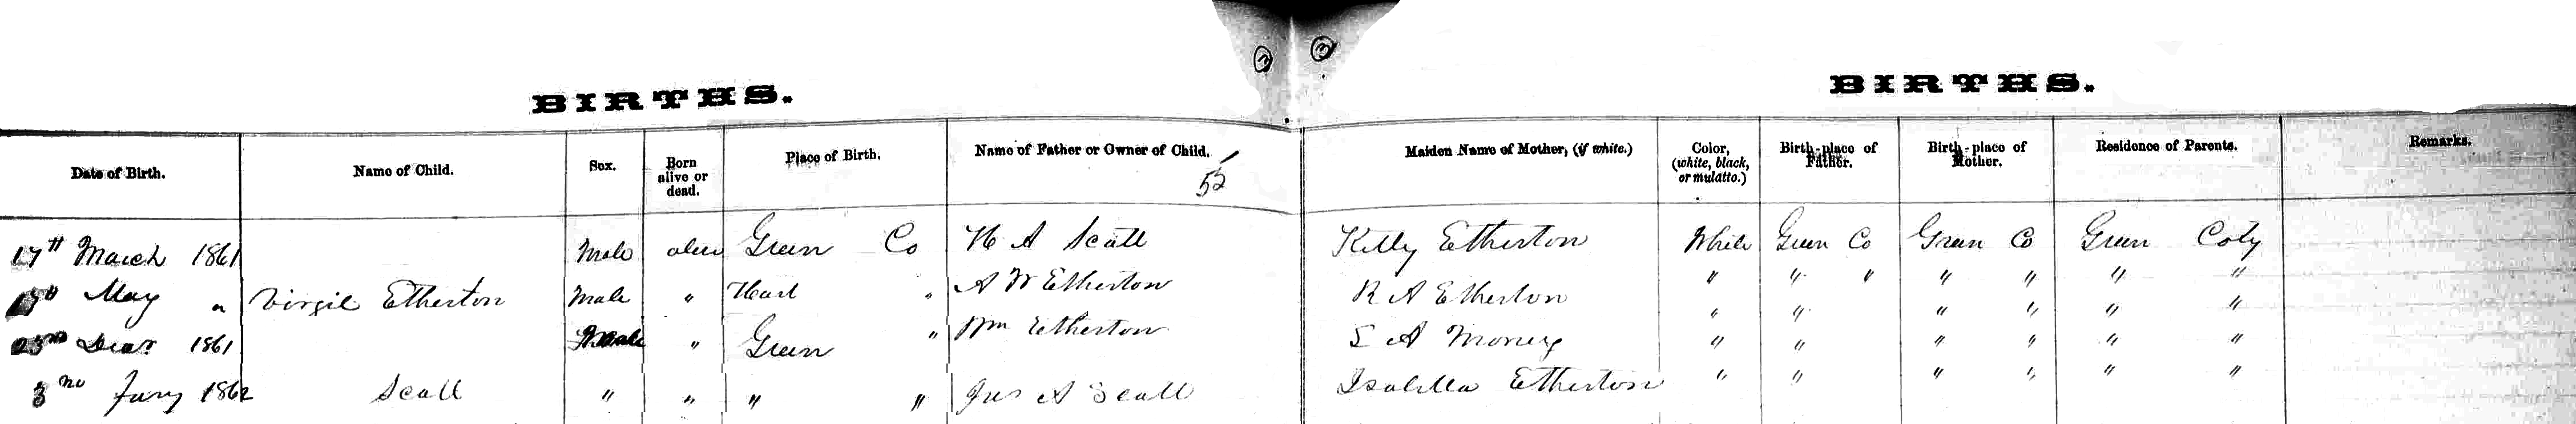 3 3
BIRTHS. BIRTHS.
Date of Birth. Name of Child. Sex. Born alive or dead. Place of Birth. Name of Father or Owner of Child. Maiden Name of Mother, (if white.) Color, (white, black, or mulatto.) Birth-place of Father. Birth-place of Mother. Residence of Parents. Remarks.
52
17th March 1861 Male alive Green Co H A Scott Kitty Etherton White Green Co Green Co Green Coty
May " Virgil Etherton Male " Hart " A W Etherton R A Etherton " " " " " " "
1861 " Green " Wm Etherton S A " " " " " "
3rd Jany 1862 Scott " " " " Jas A Scott Isabella Etherton " " " " " "